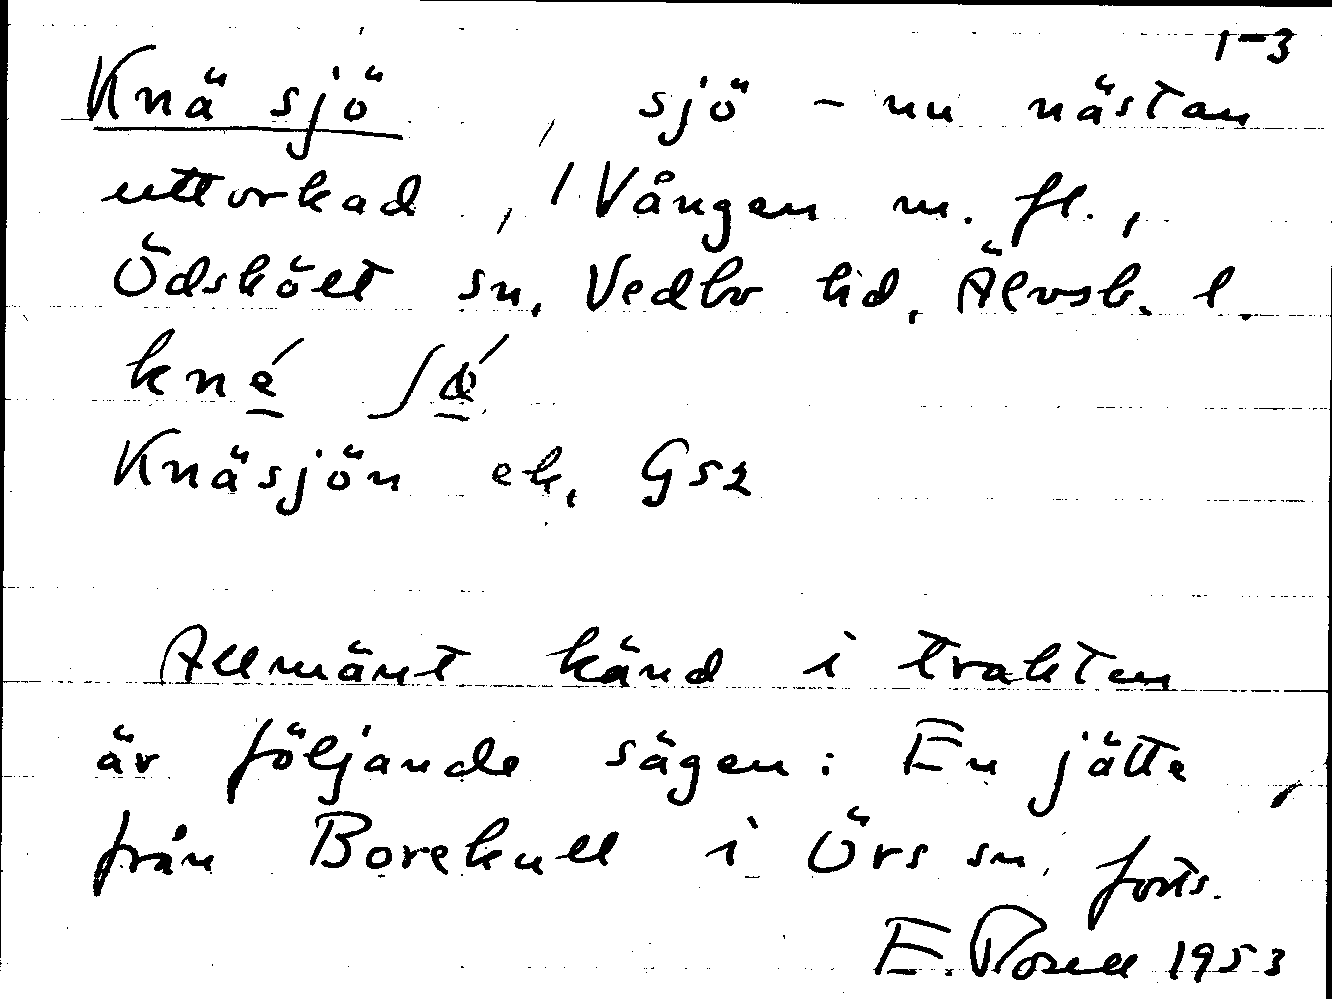 1-3
Knä sjö, sjö - nu nästan
uttorkad, / Vången m. fl.,
Ödskölt sn, Vedbo hd, Älvsb. l.
kné ʃǿ
Knäsjön ek, Gs2
Allmänt känd i trakten
är följande sägen: En jätte,
från Borekull i Örs sn, forts.
E. Rosell 1953